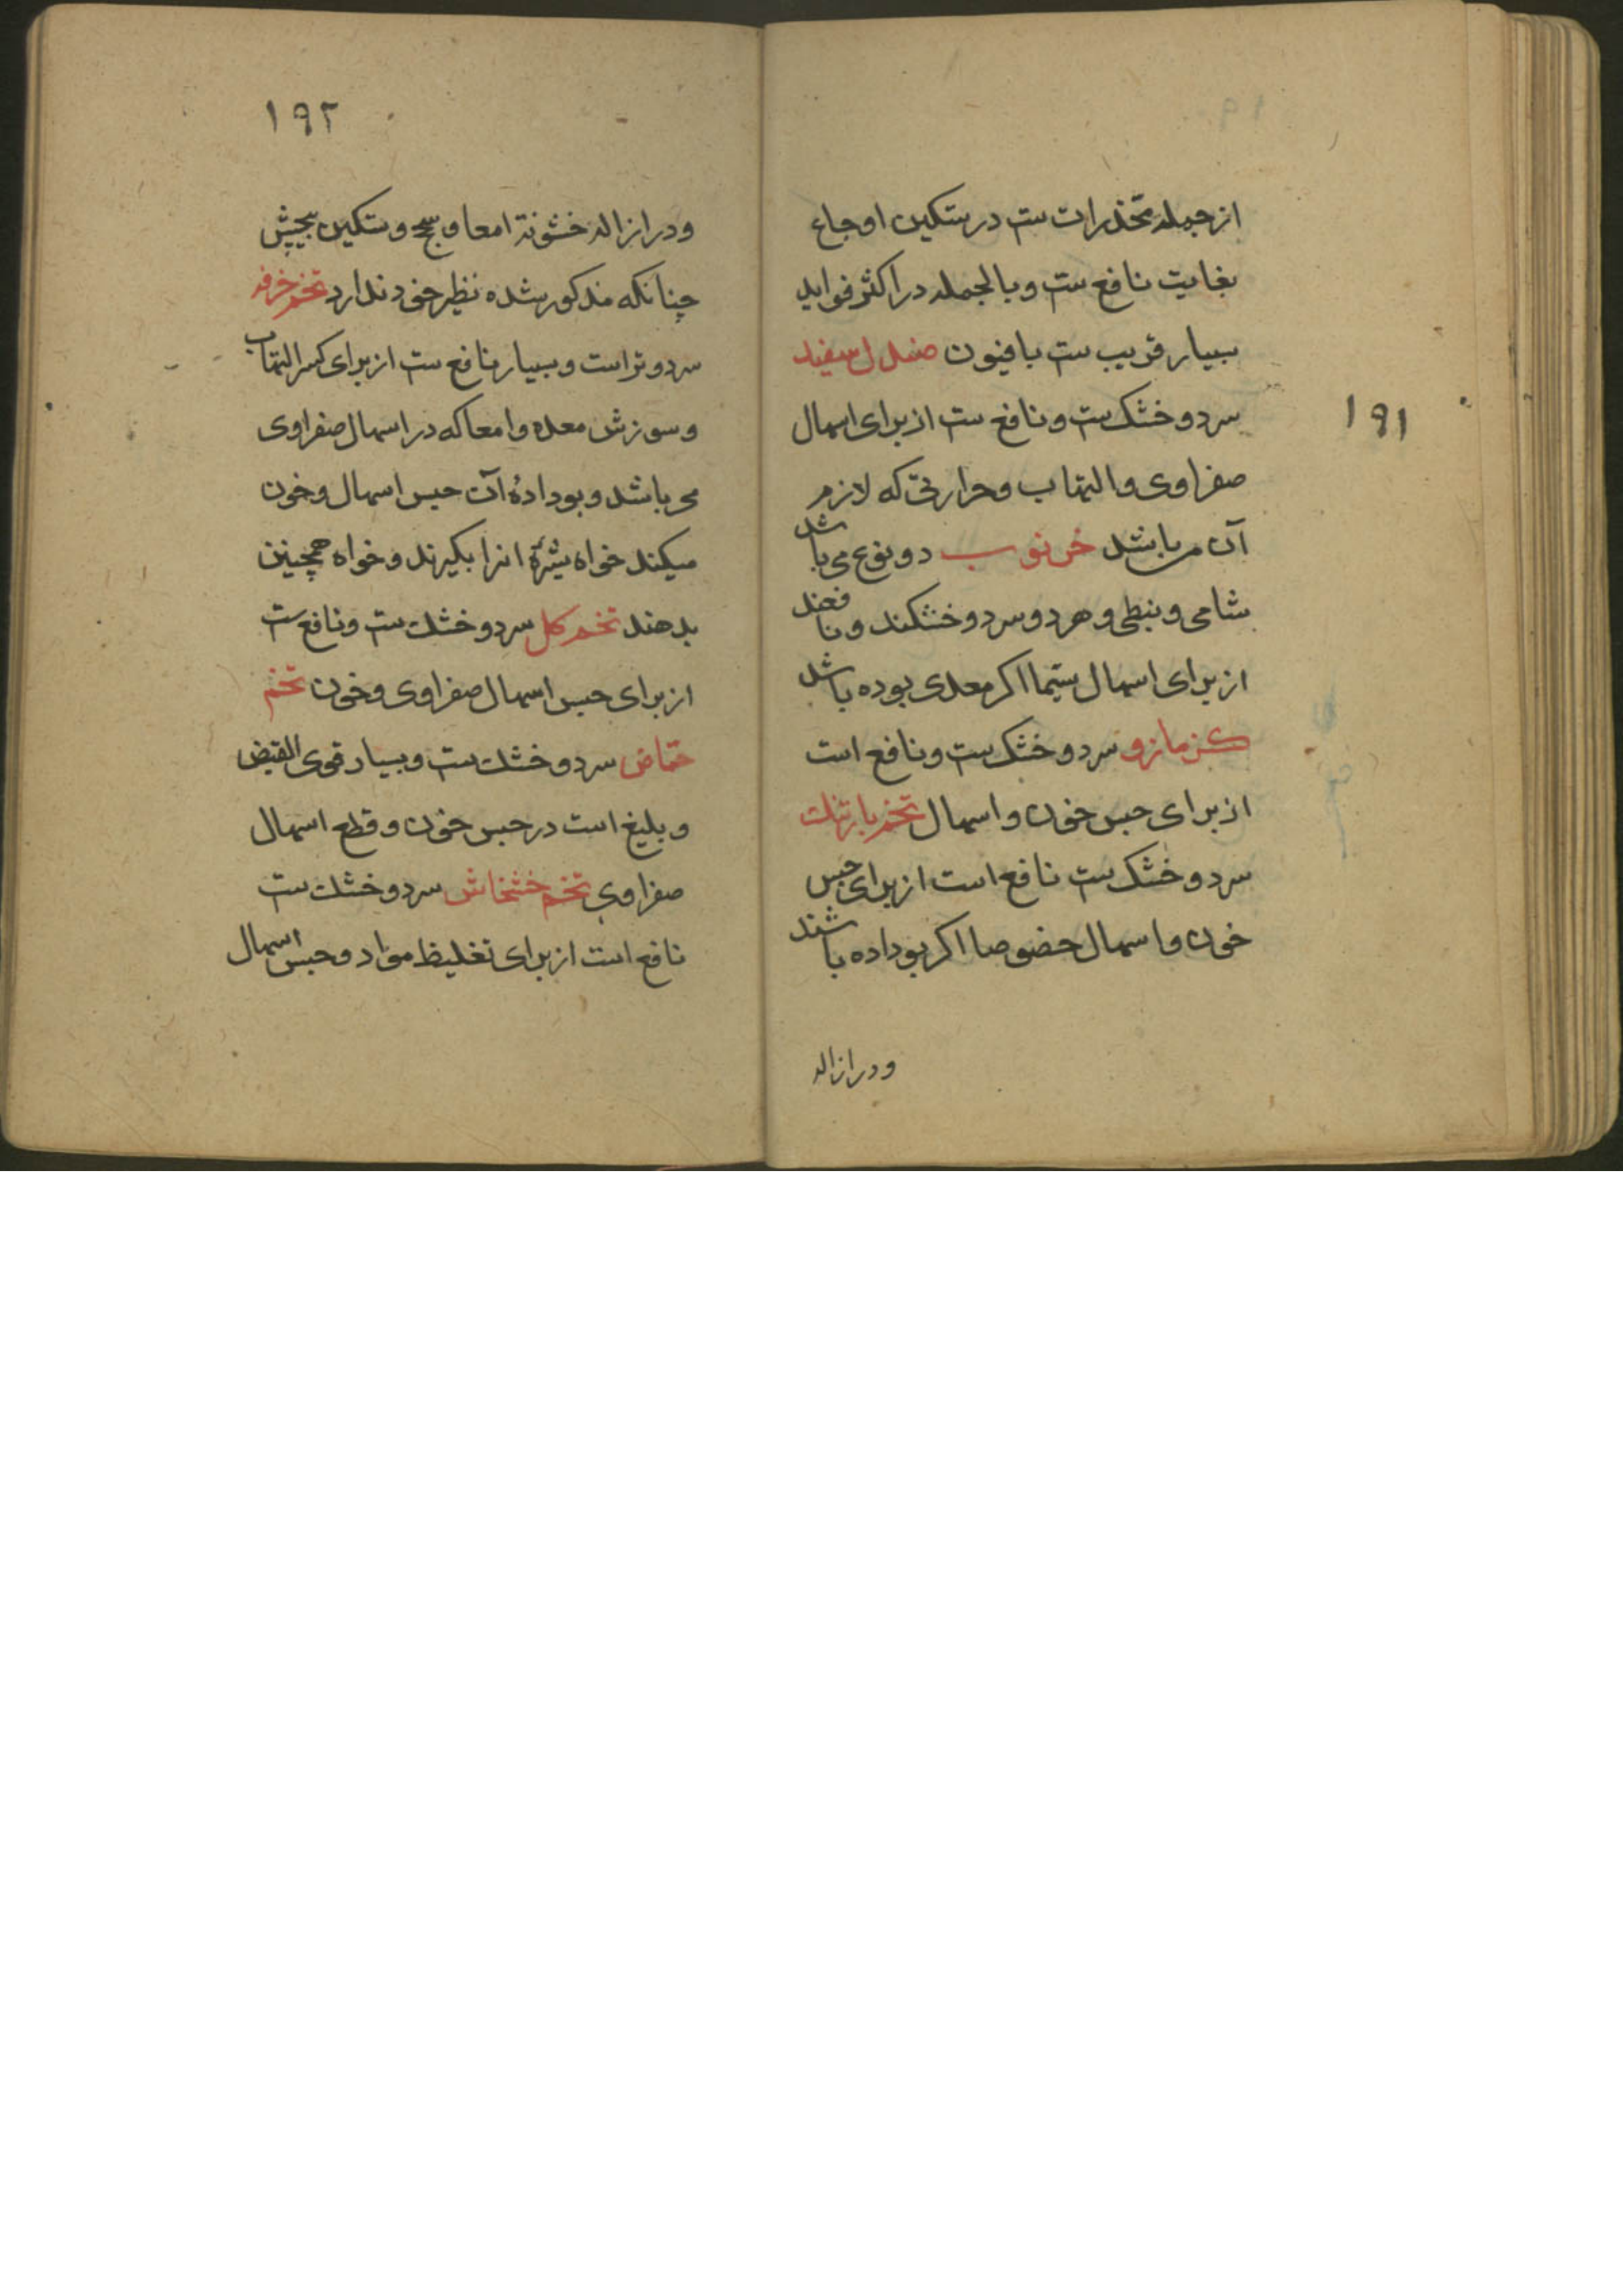 ۱۹۱
از جمله مخدرات ست در تسکین اوجاع
بغایت نافع ست و بالجمله در اکثر فواید
بسیار قریب ست بافیون صندل سفید
سرد و خشک ست و نافع ست از برای اسهال
صفراوی و التهاب و حرارتی که لازم
آن میباشد خرنوب دو نوع می باشد
شامی و نبطی و هر دو سرد و خشکند و نافعند
از برای اسهال سیما اکر معدی بوده باشد
کزمازو سرد و خشک ست و نافع است
از برای حبس خون و اسهال تخم بارتنك
سرد و خشک ست نافع است از برای حبس
خون و اسهال خصوصا اکر بوداده باشند
و در ازاله
۱۹۲
و در ازاله خشونة امعا و سحج و تسکین پیچش
چنانکه مذکور شده نظیر خود ندارد تخم خرفه
سرد و تر است و بسیار نافع ست از برای کسر التهاب
و سوزش معده و امعا که در اسهال صفراوی
می باشد و بودادهٔ آن حبس اسهال و خون
میکند خواه شیرهٔ انرا بکیرند و خواه همچنین
بدهند تخم کل سرد و خشك ست و نافع ست
از برای حبس اسهال صفراوی و خون تخم
حماض سرد و خشك ست و بسیار قوی القبض
و بلیغ است در حبس خون و قطع اسهال
صفراوی تخم خشخاش سرد و خشك ست
نافع است از برای تغلیظ مواد و حبس اسهال